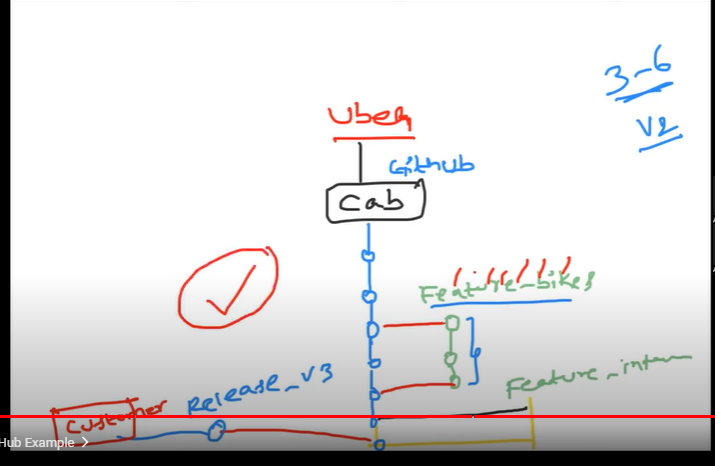 3-6
V2
Uber
Github
Cab
Feature_bikes
Feature_inter
Release_V3
Customer
Hub Example